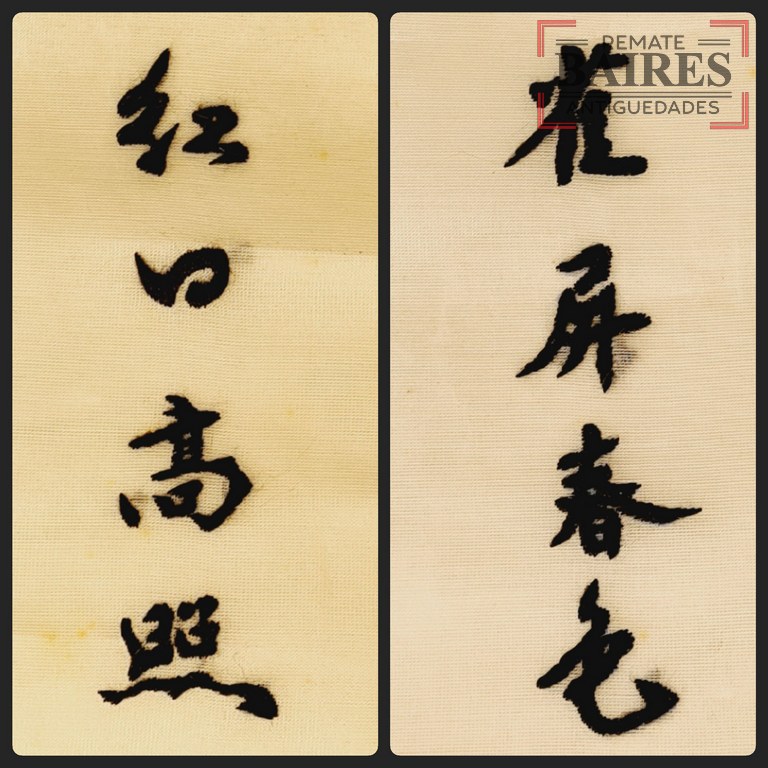 紅日高照
雀屏春色
REMATE
BAIRES
ANTIGUEDADES